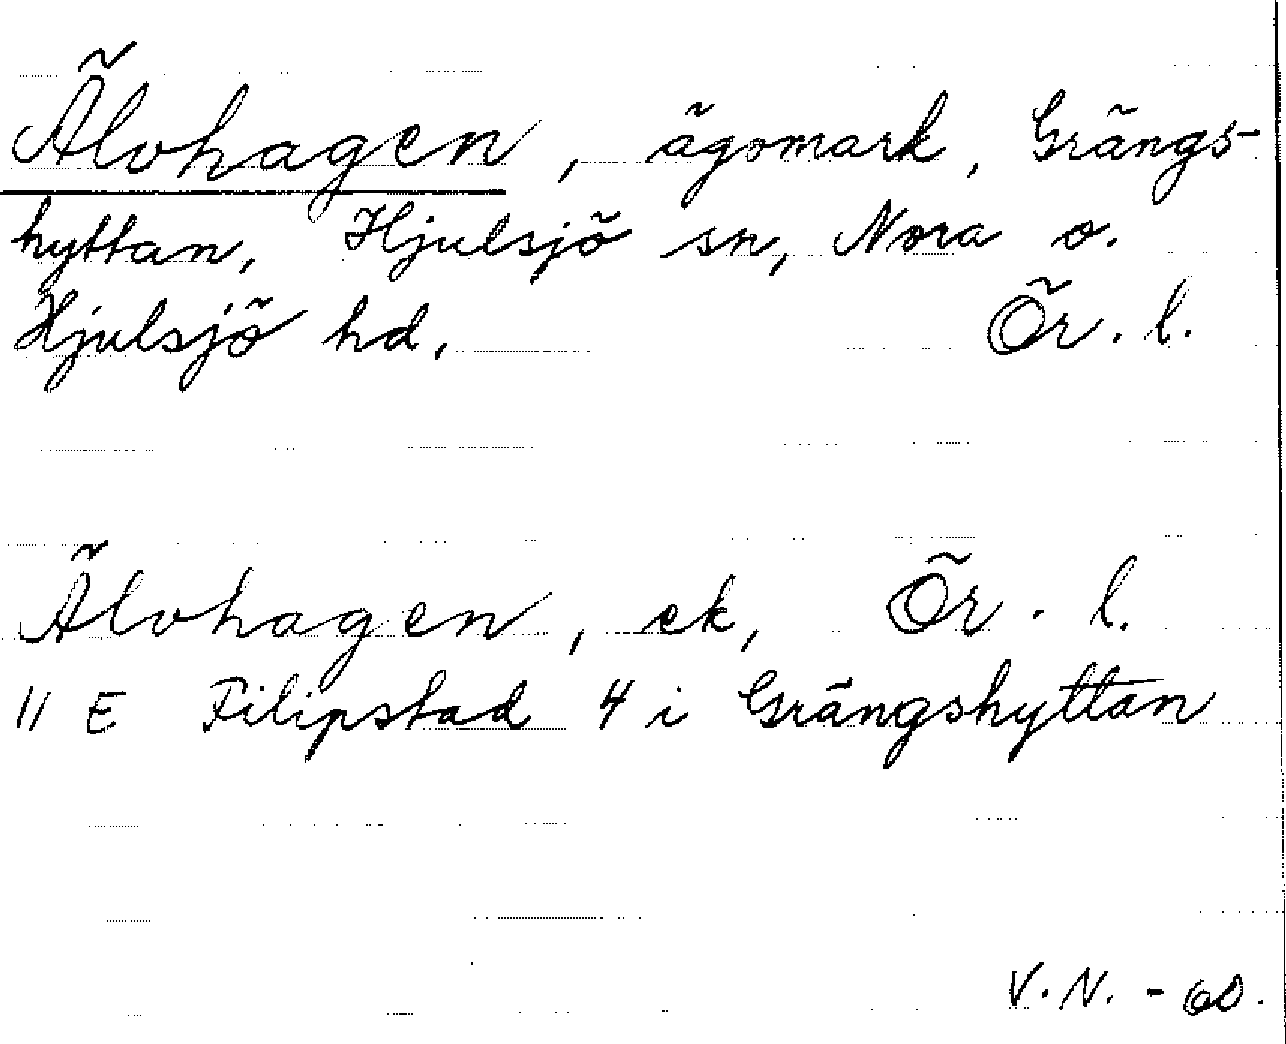 Älvhagen, ägomark, Grängs-
hyttan, Hjulsjö sn, Nora o.
Hjulsjö hd, Ör. l.
Älvhagen, ek, Ör. l.
11 E Filipstad 4 i Grängshyttan
V. N. - 60.